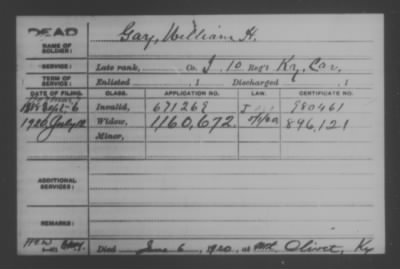 DEAD
NAME OF SOLDIER:
Gay, William H.
SERVICE:
Late rank, Co. I, 10 Reg't Ky. Cav.
TERM OF SERVICE:
Enlisted , 1 Discharged , 1
DATE OF FILING. CLASS. APPLICATION NO. LAW. CERTIFICATE NO.
Sept-6 Invalid, 671269 980461
1920, July 12 Widow, 1160,672. 896,121
Minor,
ADDITIONAL SERVICES:
REMARKS:
Died June 6, 1920, at Mt. Olivet, Ky